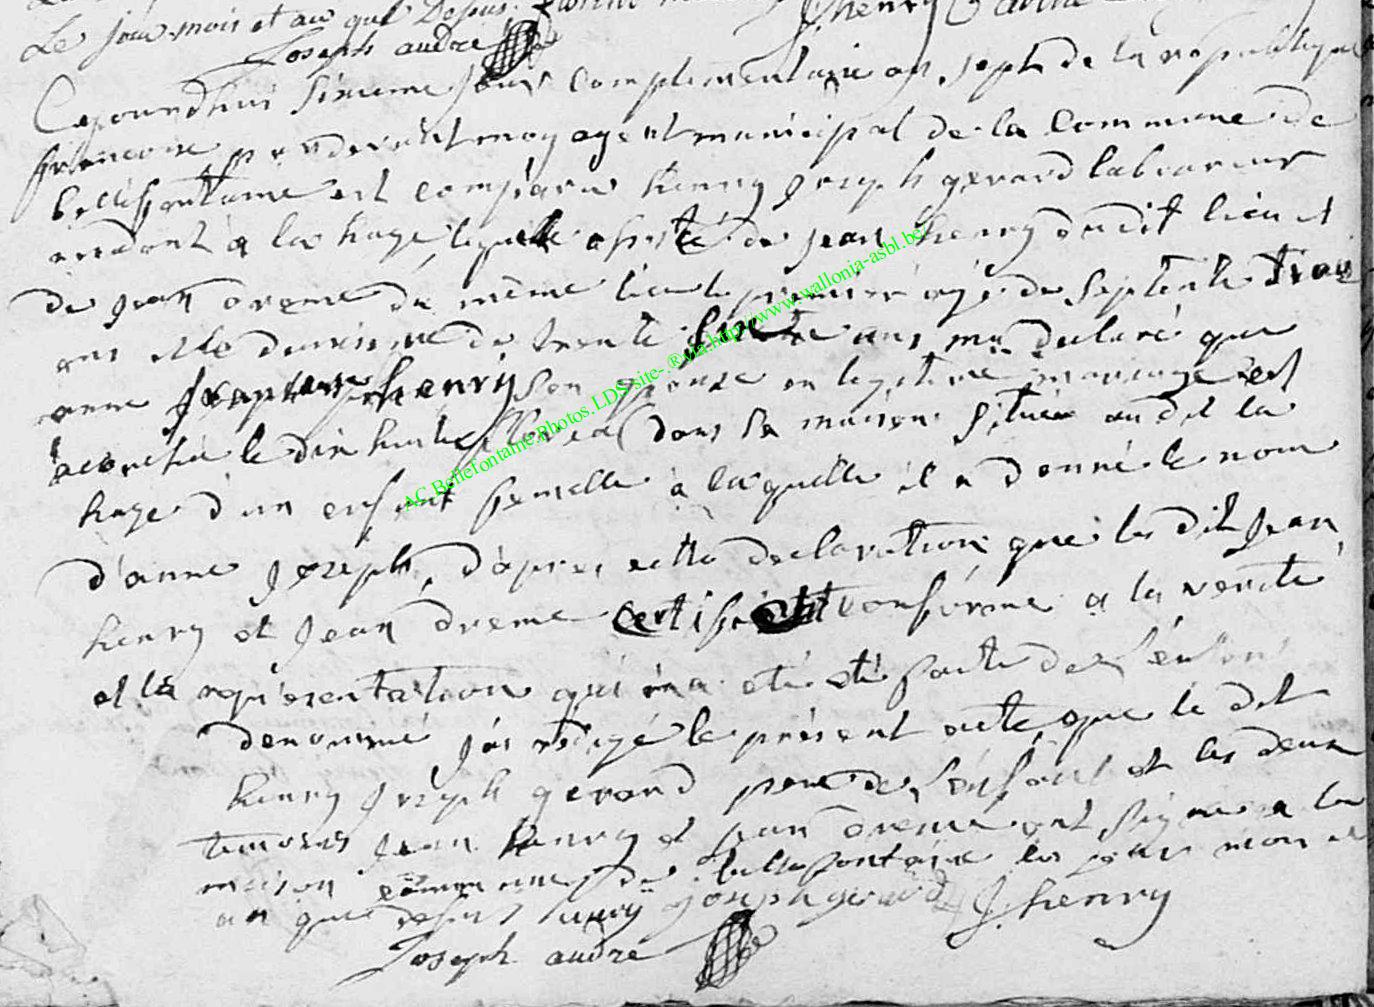 Le jour mois et an que Dessus
J henry
Joseph andre
Cejourdhui sixieme jour complimentaire an sept de la republique
francoise pardevant moy agent municipal de la Commune de
bellefontaine est comparu henry Joseph gerard laboureur
residant a la hage lequelle assisté de jean henry du dit lieu et
de jean dreme du même lieu le premier agé de septente trois
ans et le deuxieme de trente ans ma declaré que
anne henry son epouse en legitime mariage est
acouchée le dix huit dans sa maison située au dit la
hage d'un enfant femelle à laquelle il a donné le nom
d'anne Joseph, d'apres cette declaration que les dit Jean
henry et Jean dreme certifie conforme a la verité
et la representation qui m'a eté faite de l'enfant
denommé j'ai redigé le présent acte que le dit
henry Joseph gerard pere de l'enfant et les deux
temoins jean henry et jean dreme ont signé a la
maison commune de bellefontaine les jour mois et
an que dessus henry joseph gerard J henry
Joseph andre
AC.Bellefontaine.Photos.LDS site-.®via.http://www.wallonia-asbl.be/